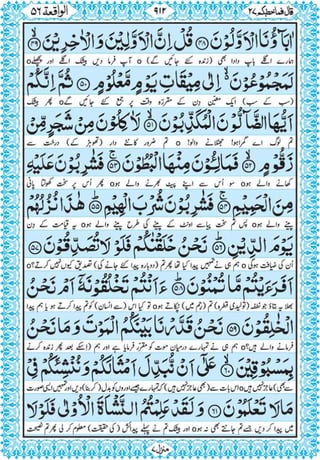 قال فما خطبکم ۲۷ ۹۱۳ الواقعة ۵۶
اٰبَآؤُنَا الْاَوَّلُوْنَ ﴿۴۸﴾ قُلْ اِنَّ الْاَوَّلِيْنَ وَالْاٰخِرِيْنَ ﴿۴۹﴾
ہمارے اگلے باپ دادا بھی (زندہ کئے جائیں گے) o آپ فرما دیں بیشک اگلے اور پچھلے o
لَمَجْمُوْعُوْنَ ۙ اِلٰى مِيْقَاتِ يَوْمٍ مَّعْلُوْمٍ ﴿۵۰﴾ ثُمَّ اِنَّكُمْ
(سب کے سب) ایک معین دن کے مقررہ وقت پر جمع کئے جائیں گے o پھر بیشک
اَيُّهَا الضَّآلُّوْنَ الْمُكَذِّبُوْنَ ﴿۵۱﴾ لَاٰكِلُوْنَ مِنْ شَجَرٍ مِّنْ
تم لوگ اے گمراہو! جھٹلانے والو! o تم ضرور کانٹے دار (تھوہڑ کے) درخت سے
زَقُّوْمٍ ﴿۵۲﴾ فَمَالِـُٔوْنَ مِنْهَا الْبُطُوْنَ ﴿۵۳﴾ فَشٰرِبُوْنَ عَلَيْهِ
کھانے والے ہو o سو اُس سے اپنے پیٹ بھرنے والے ہو o پھر اُس پر سخت کھولتا پانی
مِنَ الْحَمِيْمِ ﴿۵۴﴾ فَشٰرِبُوْنَ شُرْبَ الْهِيْمِ ﴿۵۵﴾ هٰذَا نُزُلُهُمْ
پینے والے ہو o پس تم سخت پیاسے اونٹ کے پینے کی طرح پینے والے ہو o یہ قیامت کے دن
يَوْمَ الدِّيْنِ ﴿۵۶﴾ نَحْنُ خَلَقْنٰكُمْ فَلَوْ لَا تُصَدِّقُوْنَ ﴿۵۷﴾
اُن کی ضیافت ہوگی o ہم ہی نے تمہیں پیدا کیا تھا پھر تم (دوبارہ پیدا کئے جانے کی) تصدیق کیوں نہیں کرتے؟ o
اَفَرَءَيْتُمْ مَّا تُمْنُوْنَ ﴿۵۸﴾ ءَاَنْتُمْ تَخْلُقُوْنَهٗٓ اَمْ نَحْنُ
بھلا یہ بتاؤ جو نطفہ (تولیدی قطرہ) تم (رحم میں) ٹپکاتے ہو o تو کیا اس (سے انسان) کو تم پیدا کرتے ہو یا ہم پیدا
الْخٰلِقُوْنَ ﴿۵۹﴾ نَحْنُ قَدَّرْنَا بَيْنَكُمُ الْمَوْتَ وَمَا نَحْنُ
فرمانے والے ہیں؟ o ہم ہی نے تمہارے درمیان موت کو مقرر فرمایا ہے اور ہم (اِسکے بعد پھر زندہ کرنے
بِمَسْبُوْقِيْنَ ﴿۶۰﴾ عَلٰٓى اَنْ نُّبَدِّلَ اَمْثَالَكُمْ وَنُنْشِئَكُمْ فِيْ
سے بھی) عاجز نہیں ہیں o اس بات سے (بھی عاجز نہیں ہیں) کہ تمہارے جیسے اوروں کو بدل (کر بنا) دیں اور تمہیں ایسی صورت
مَا لَا تَعْلَمُوْنَ ﴿۶۱﴾ وَلَقَدْ عَلِمْتُمُ النَّشْاَةَ الْاُوْلٰى فَلَوْ لَا
میں پیدا کر دیں جسے تم جانتے بھی نہ ہو o اور بیشک تم نے پہلے پیدائش (کی حقیقت) معلوم کر لی پھر تم نصیحت
منزل ۷